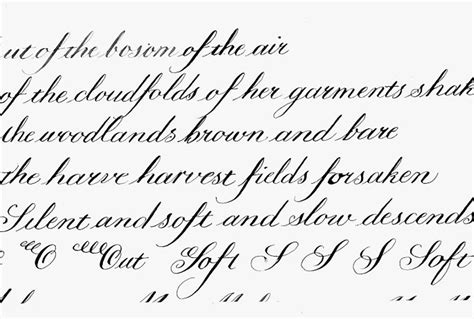 ut of the bosom of the air
of the cloudfolds of her garments shak
the woodlands brown and bare
the harve harvest fields forsaken
Silent and soft and slow descends
O Out Soft S S S Soft